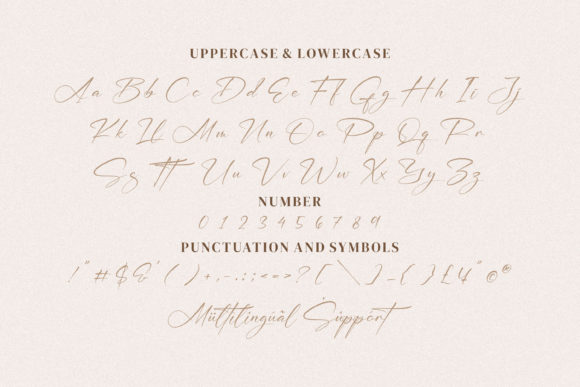 UPPERCASE & LOWERCASE
Aa Bb Cc Dd Ee Ff Gg Hh Ii Jj
Kk Ll Mm Nn Oo Pp Qq Rr
Ss Tt Uu Vv Ww Xx Yy Zz
NUMBER
0 1 2 3 4 5 6 7 8 9
PUNCTUATION AND SYMBOLS
! " # $ & ' ( ) + , - . : ; < = > ? [ \ ] _ { } £ ¥ " © ®
Mültilingüäl Šüppört